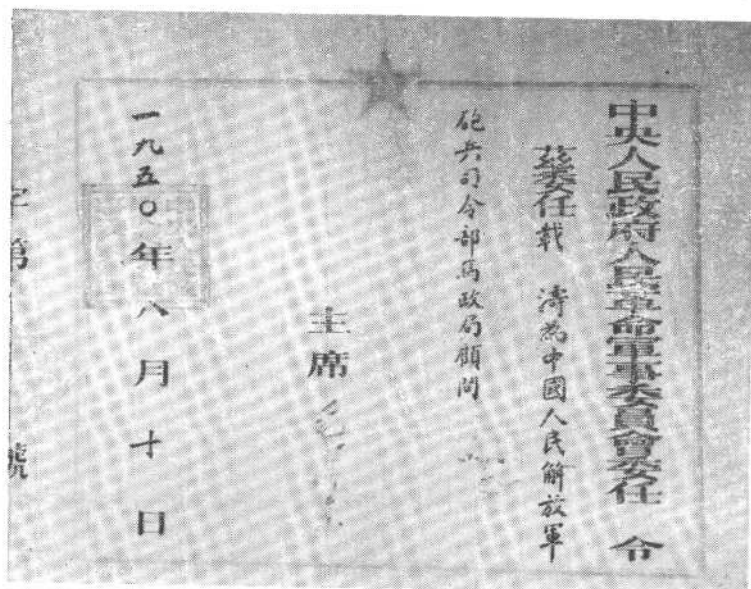 中央人民政府人民革命軍事委員會委任令
茲委任載濤為中國人民解放軍
砲兵司令部馬政局顧問
主席
一九五〇年八月十日
字第
號